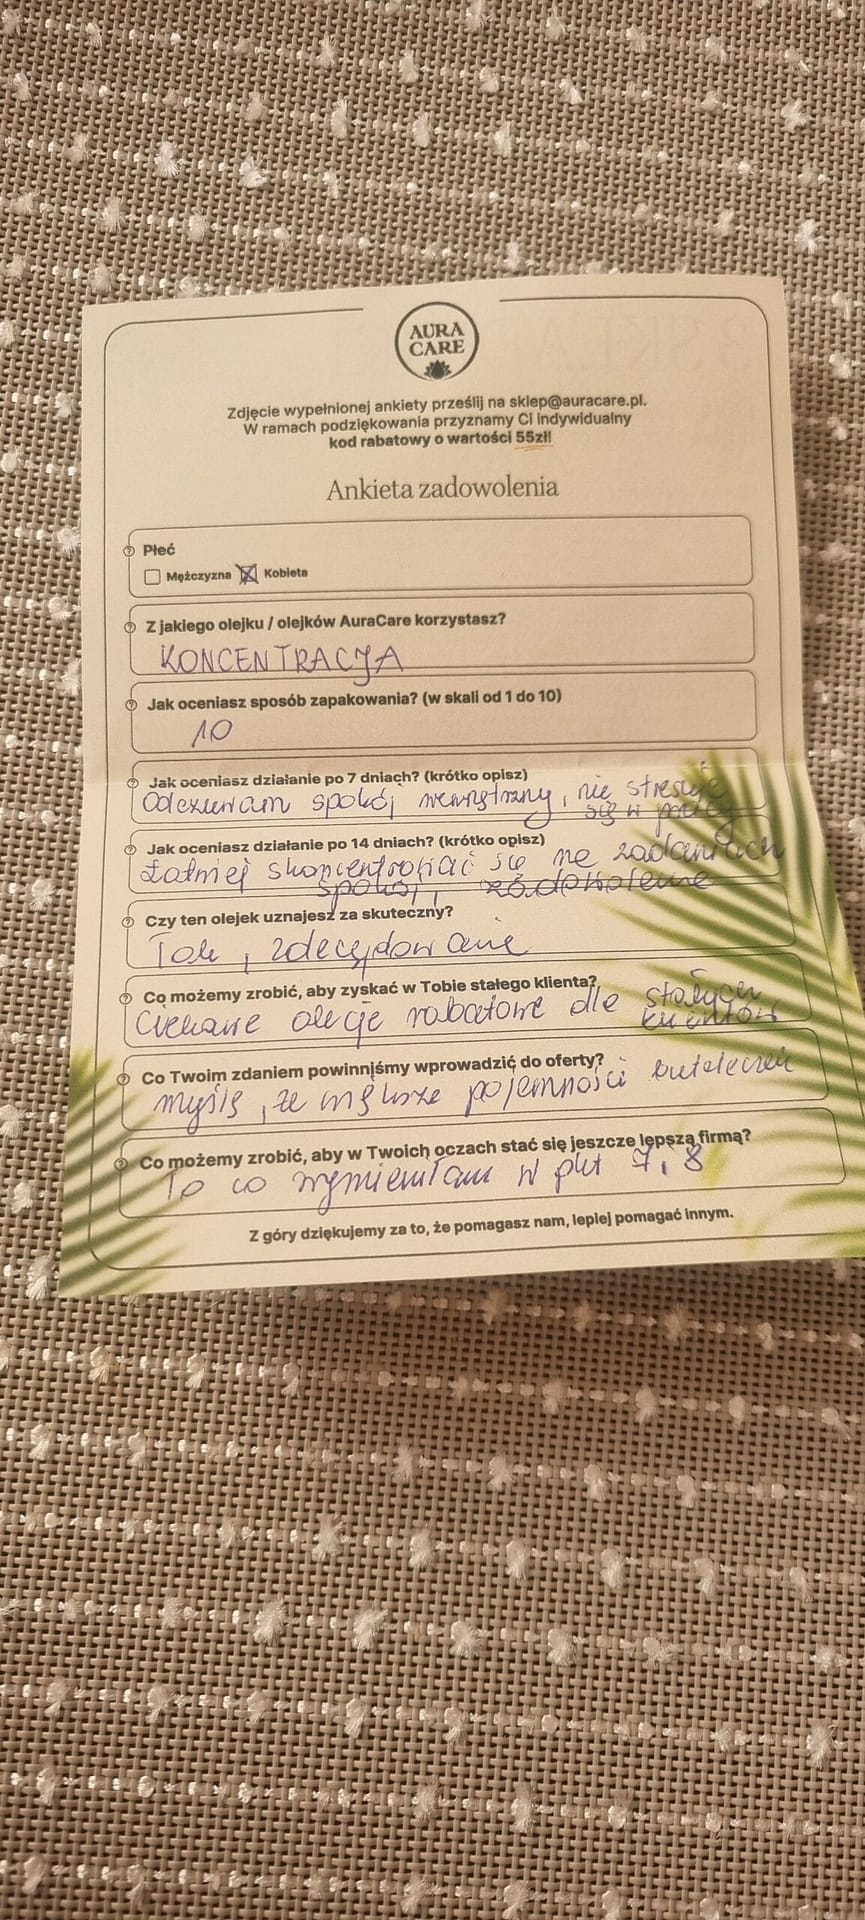 AURA
CARE
Zdjęcie wypełnionej ankiety prześlij na sklep@auracare.pl.
W ramach podziękowania przyznamy Ci indywidualny
kod rabatowy o wartości 55zł!
Ankieta zadowolenia
Płeć
Mężczyzna Kobieta
Z jakiego olejku / olejków AuraCare korzystasz?
KONCENTRACJA
Jak oceniasz sposób zapakowania? (w skali od 1 do 10)
10
Jak oceniasz działanie po 7 dniach? (krótko opisz)
Odczuwam spokój wewnętrzny, nie stresuję
się w pracy
Jak oceniasz działanie po 14 dniach? (krótko opisz)
Łatwiej skoncentrować się na zadaniach
spokój, zadowolenie
Czy ten olejek uznajesz za skuteczny?
Tak, zdecydowanie
Co możemy zrobić, aby zyskać w Tobie stałego klienta?
Ciekawe akcje rabatowe dla stałych
klientów
Co Twoim zdaniem powinniśmy wprowadzić do oferty?
myślę, że większe pojemności buteleczek
Co możemy zrobić, aby w Twoich oczach stać się jeszcze lepszą firmą?
To co wymieniłam w pkt 7, 8
Z góry dziękujemy za to, że pomagasz nam, lepiej pomagać innym.